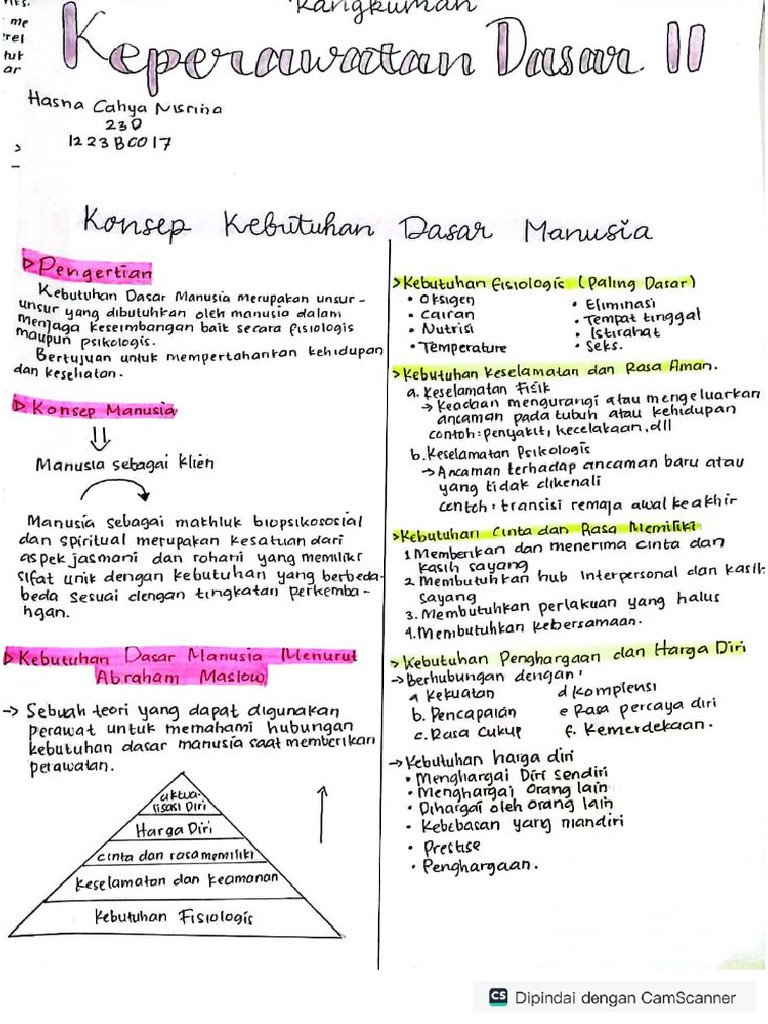 Rangkuman
Keperawatan Dasar II
me
Hasna Cahya Nisrina
23D
1223BC017
Konsep Kebutuhan Dasar Manusia
Pengertian
Kebutuhan Dasar Manusia Merupakan unsur-
unsur yang dibutuhkan oleh manusia dalam
menjaga keseimbangan baik secara fisiologis
maupun psikologis.
Bertujuan untuk mempertahankan kehidupan
dan kesehatan.
Konsep Manusia
⇓
Manusia sebagai klien
Manusia sebagai makhluk biopsikososial
dan spiritual merupakan kesatuan dari
aspek jasmani dan rohani yang memiliki
sifat unik dengan kebutuhan yang berbeda-
beda sesuai dengan tingkatan perkemba-
hgan.
Kebutuhan Dasar Manusia Menurut
Abraham Maslow
→ Sebuah teori yang dapat digunakan
perawat untuk memahami hubungan
kebutuhan dasar manusia saat memberikan
perawatan.
aktua-
lisasi Diri
Harga Diri
cinta dan rasa memiliki
Keselamatan dan Keamanan
Kebutuhan Fisiologis
>Kebutuhan fisiologis (Paling Dasar)
• Oksigen
• Cairan
• Nutrisi
• Temperature
• Eliminasi
• Tempat tinggal
• Istirahat
• Seks.
>Kebutuhan Keselamatan dan Rasa Aman.
a. Keselamatan Fisik
→ Keadaan mengurangi atau mengeluarkan
ancaman pada tubuh atau kehidupan
contoh: penyakit, kecelakaan, dll
b. Keselamatan Psikologis
→ Ancaman terhadap ancaman baru atau
yang tidak dikenali
contoh: transisi remaja awal ke akhir
>Kebutuhan Cinta dan Rasa Memiliki
1. Memberikan dan menerima cinta dan
kasih sayang
2. Membutuhkan hub interpersonal dan kasih
sayang
3. Membutuhkan perlakuan yang halus
4. Membutuhkan kebersamaan.
> Kebutuhan Penghargaan dan Harga Diri
→ Berhubungan dengan:
a Kekuatan
b. Pencapaian
c. Rasa Cukup
d Komplensi
e Rasa percaya diri
f. Kemerdekaan.
→ Kebutuhan harga diri
• Menghargai Diri sendiri
• Menghargai Orang lain
• Dihargai oleh orang lain
• Kebebasan yang mandiri
• Prestise
• Penghargaan.
CS Dipindai dengan CamScanner